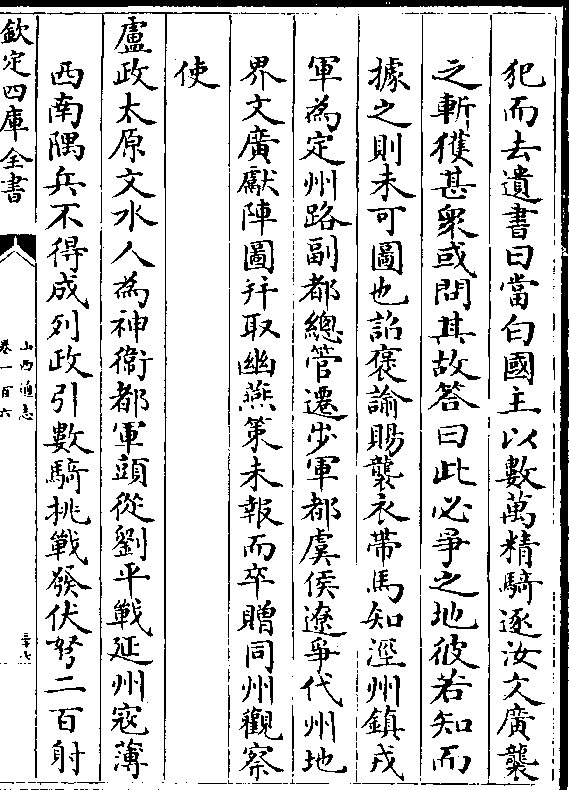 犯而去遺書曰當白國主以數萬精騎逐汝文廣襲
之斬獲甚衆或問其故答曰此必爭之地彼若知而
據之則未可圖也詔褒諭賜襲衣帶馬知涇州鎮戎
軍為定州路副都總管遷步軍都虞侯遼爭代州地
界文廣獻陣圖并取幽燕策未報而卒贈同州觀察
使
盧政太原文水人為神衞都軍頭從劉平戰延州寇薄
西南隅兵不得成列政引數騎挑戰發伏弩二百射
欽定四庫全書
山西通志
卷一百六
三十七